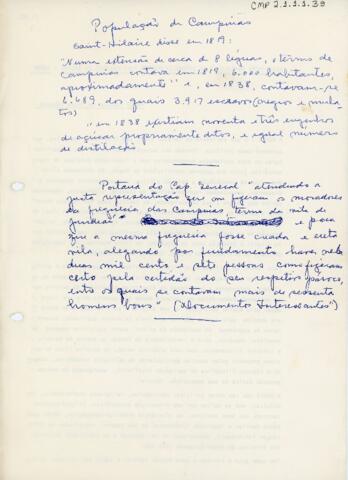 CMP 2.1.1.1.39
População de Campinas
Saint-Hilaire disse em 1819:
"Numa extensão de cerca de 8 léguas, o termo de
Campinas contava em 1819, 6.000 habitantes,
aproximadamente" e, em 1838, contavam-se
6.689, dos quais 3.917 escravos (negros e mula
tos)
"em 1838 existiam noventa e três engenhos
de açúcar propriamente ditos, e igual número
de distilação
Portaria do Cap. General "atendendo a
justa representação que me fizeram os moradores
da freguesia das Campinas termo da vila de
Jundiaí" e para
que a mesma freguesia fosse criada e ereta
vila, alegando por fundamento haver nela
duas mil cento e sete pessoas como fizeram
certo pela certidão do seu respetivo pároco,
entre os quais se contavam mais de sessenta
homens bons" ("Documentos Interessantes")